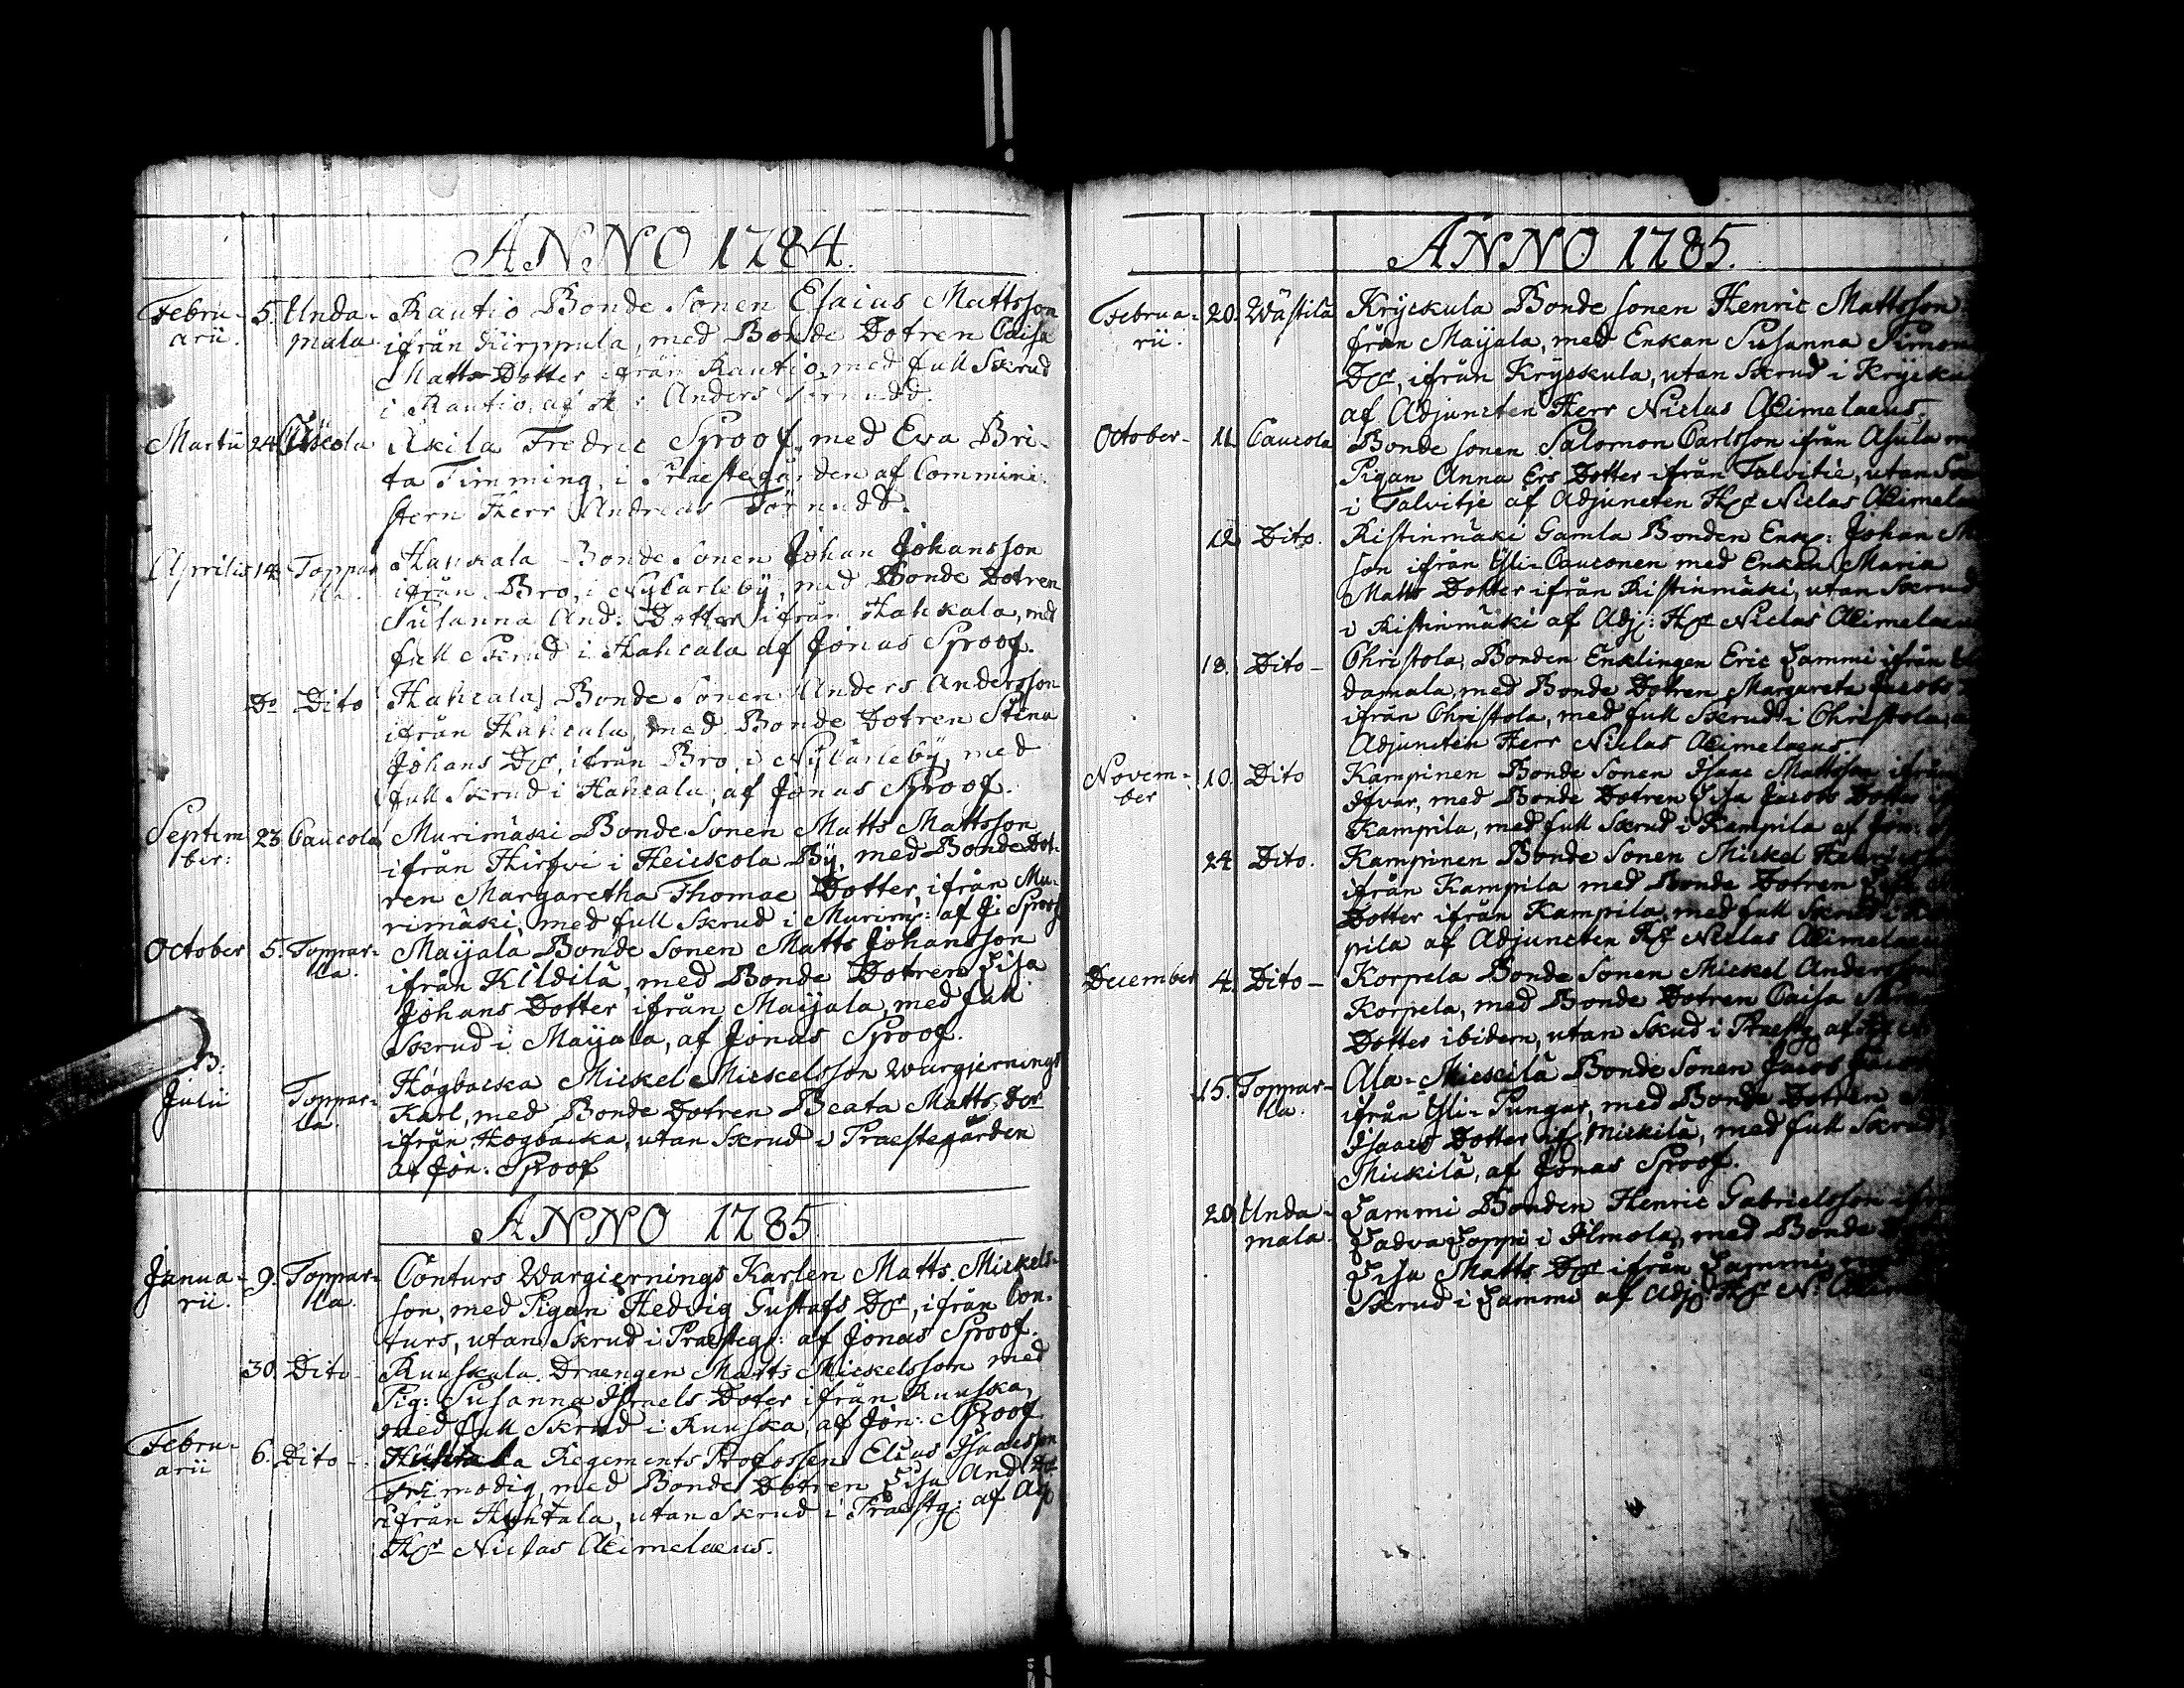 ANNO 1784.
Febru- 5. Unda- Rautio Bonde Sonen Esaias Mattsson
arii. mala ifrån Kirppula, med Bonde Dotren Caisa
Matts Dotter ifrån Rautio, med full Skrud
i Rautio, af Anders
Martii 24 Åkila Fredric Sproof, med Eva Bri-
ta Timming, i Praestegården af Commini-
stern Herr Andreas Törnudd.
Aprilis 14 Toppar Hahkala Bonde Sonen Johan Johansson
la. ifrån Bro, i Nÿcarlebÿ, med Bonde Dotren
Susanna And: Dotter ifrån Hahkala, med
full Skrud i Hahcala af Jonas Sproof.
Do Dito Hahcala Bonde Sonen Anders Andersson
ifrån Hahcala, med Bonde Dotren Stina
Johans Dr, ifrån Bro, i Nÿcarlebÿ, med
full Skrud i Hahcala, af Jonas Sproof.
Septem 23 Caucola Murimäki Bonde Sonen Matts Mattsson
ber: ifrån Hirfvi i Heickola Bÿ, med Bonde Dot-
ren Margaretha Thomae Dotter, ifrån Mu-
rimäki, med full Skrud i Murim: af J: Sproof
October 5. Toppar- Maijala Bonde Sonen Matts Johansson
la. ifrån Kildilä, med Bonde Dotren Lisa
Johans Dotter ifrån Maijala, med full
Skrud i Maijala, af Jonas Sproof.
B: Högbacka Mickel Mickelsson Wargiernings
Julii Toppar- Karl, med Bonde Dotren Beata Matts Dor
la. ifrån Högbacka, utan Skrud i Praestegården
af Jon: Sproof
ANNO 1785
Janua- 9. Toppar- Conturs Wargiernings Karlen Matts Mickels-
rii. la. son, med Pigan Hedvig Gustafs Dr, ifrån Con-
turs, utan Skrud i Praesteg: af Jonas Sproof.
30. Dito Ruuskala Draengen Matts Mickelsson med
Pig: Susanna Israels Doter ifrån Ruuska,
med full Skrud i Ruuska, af Jon: Sproof
Febru- 6. Dito - Regements Profossen Elias Isaacsson
arii Frimodig, med Bonde Dotren Lisa And: Dr
ifrån Huhtala, utan Skrud i Praestg: af Adj
Hr Niclas Aeimelaeus.
ANNO 1785.
Februa- 20. Wästilä Kryckula Bonde sonen Henric Mattsson
rii. från Maijala, med Enkan Susanna Simons
Dr, ifrån Kryckula, utan Skrud i Krycku
af Adjuncten Herr Niclas Aeimelaeus.
October 11 Caucola Bonde sonen Salomon Carlsson ifrån Asula
Pigan Anna Ers Dotter ifrån Talvitie, utan
i Talvitje af Adjuncten Hr Niclas Aeimelae
12 Dito. Ristinmäki Gamla Bonden Enk: Johan
son ifrån Yli-Cauconen med Enkan Maria
Matts Dotter ifrån Ristinmäki, utan Skrud
i Ristinmäki af Adj: Hr Niclas Aeimelaeu
18. Dito - Christola, Bonden Enklingen Eric Lammi ifrån
damala, med Bonde Dotren Margareta Jacobs
ifrån Christola, med full Skrud i Christola,
Adjuncten Herr Niclas Aeimelaeus.
Novem- 10. Dito Kampinen Bonde Sonen Isaac Mattsson ifrån
ber Ifvar, med Bonde Dotren Lisa Jacobs Dotter
Kampila, med full Skrud i Kampila af Jon:
24 Dito. Kampinen Bonde Sonen Mickel
ifrån Kampila med Bonde Dotren
Dotter ifrån Kampila, med full Skrud i
pila af Adjuncten Hr Niclas Aeimelaeu
December 4. Dito - Korpela Bonde Sonen Mickel Andersson
Korpela, med Bonde Dotren Caisa
Dotter ibidem, utan Skrud i Praestg: af
15. Toppar- Ala-Mickilä Bonde Sonen Jacob
la. ifrån Yli-Pungar, med Bonde Dotren
Isaacs Dotter if: Mickilä, med full Skrud
Mickilä, af Jonas Sproof.
20. Unda- Lammi Bonden Henric Gabrielsson
mala Ladva Loppi i Ilmola, med Bonde
Lisa Matts Dr ifrån Lammi,
Skrud i Lammi af Adj: Hr N: